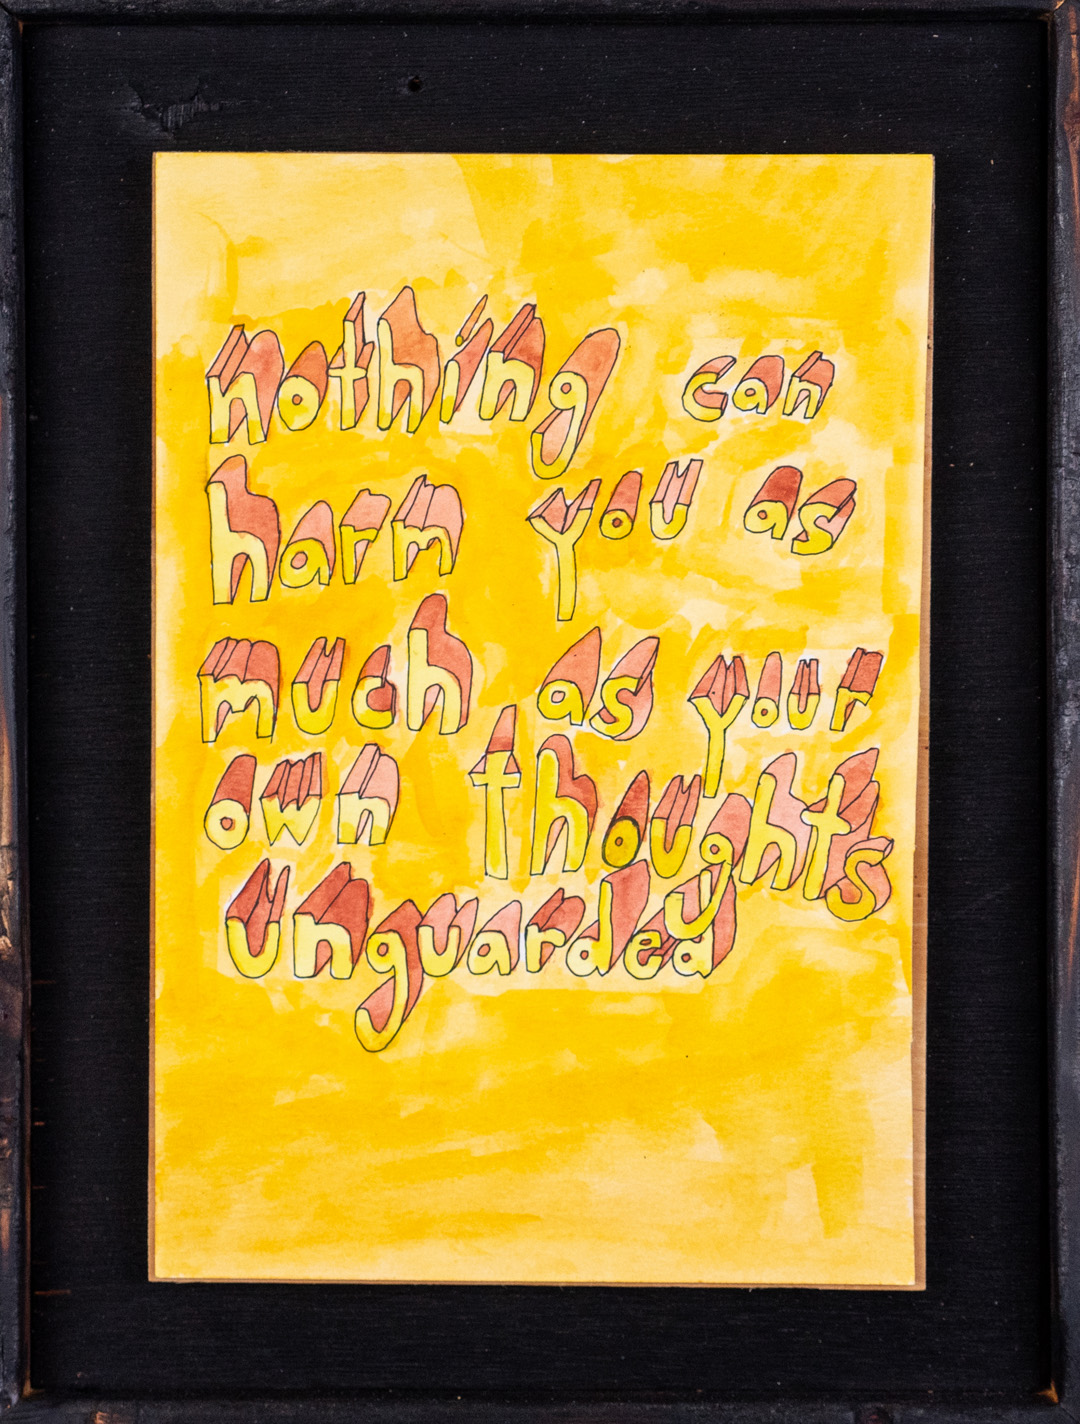 nothing can
harm you as
much as your
own thoughts
unguarded